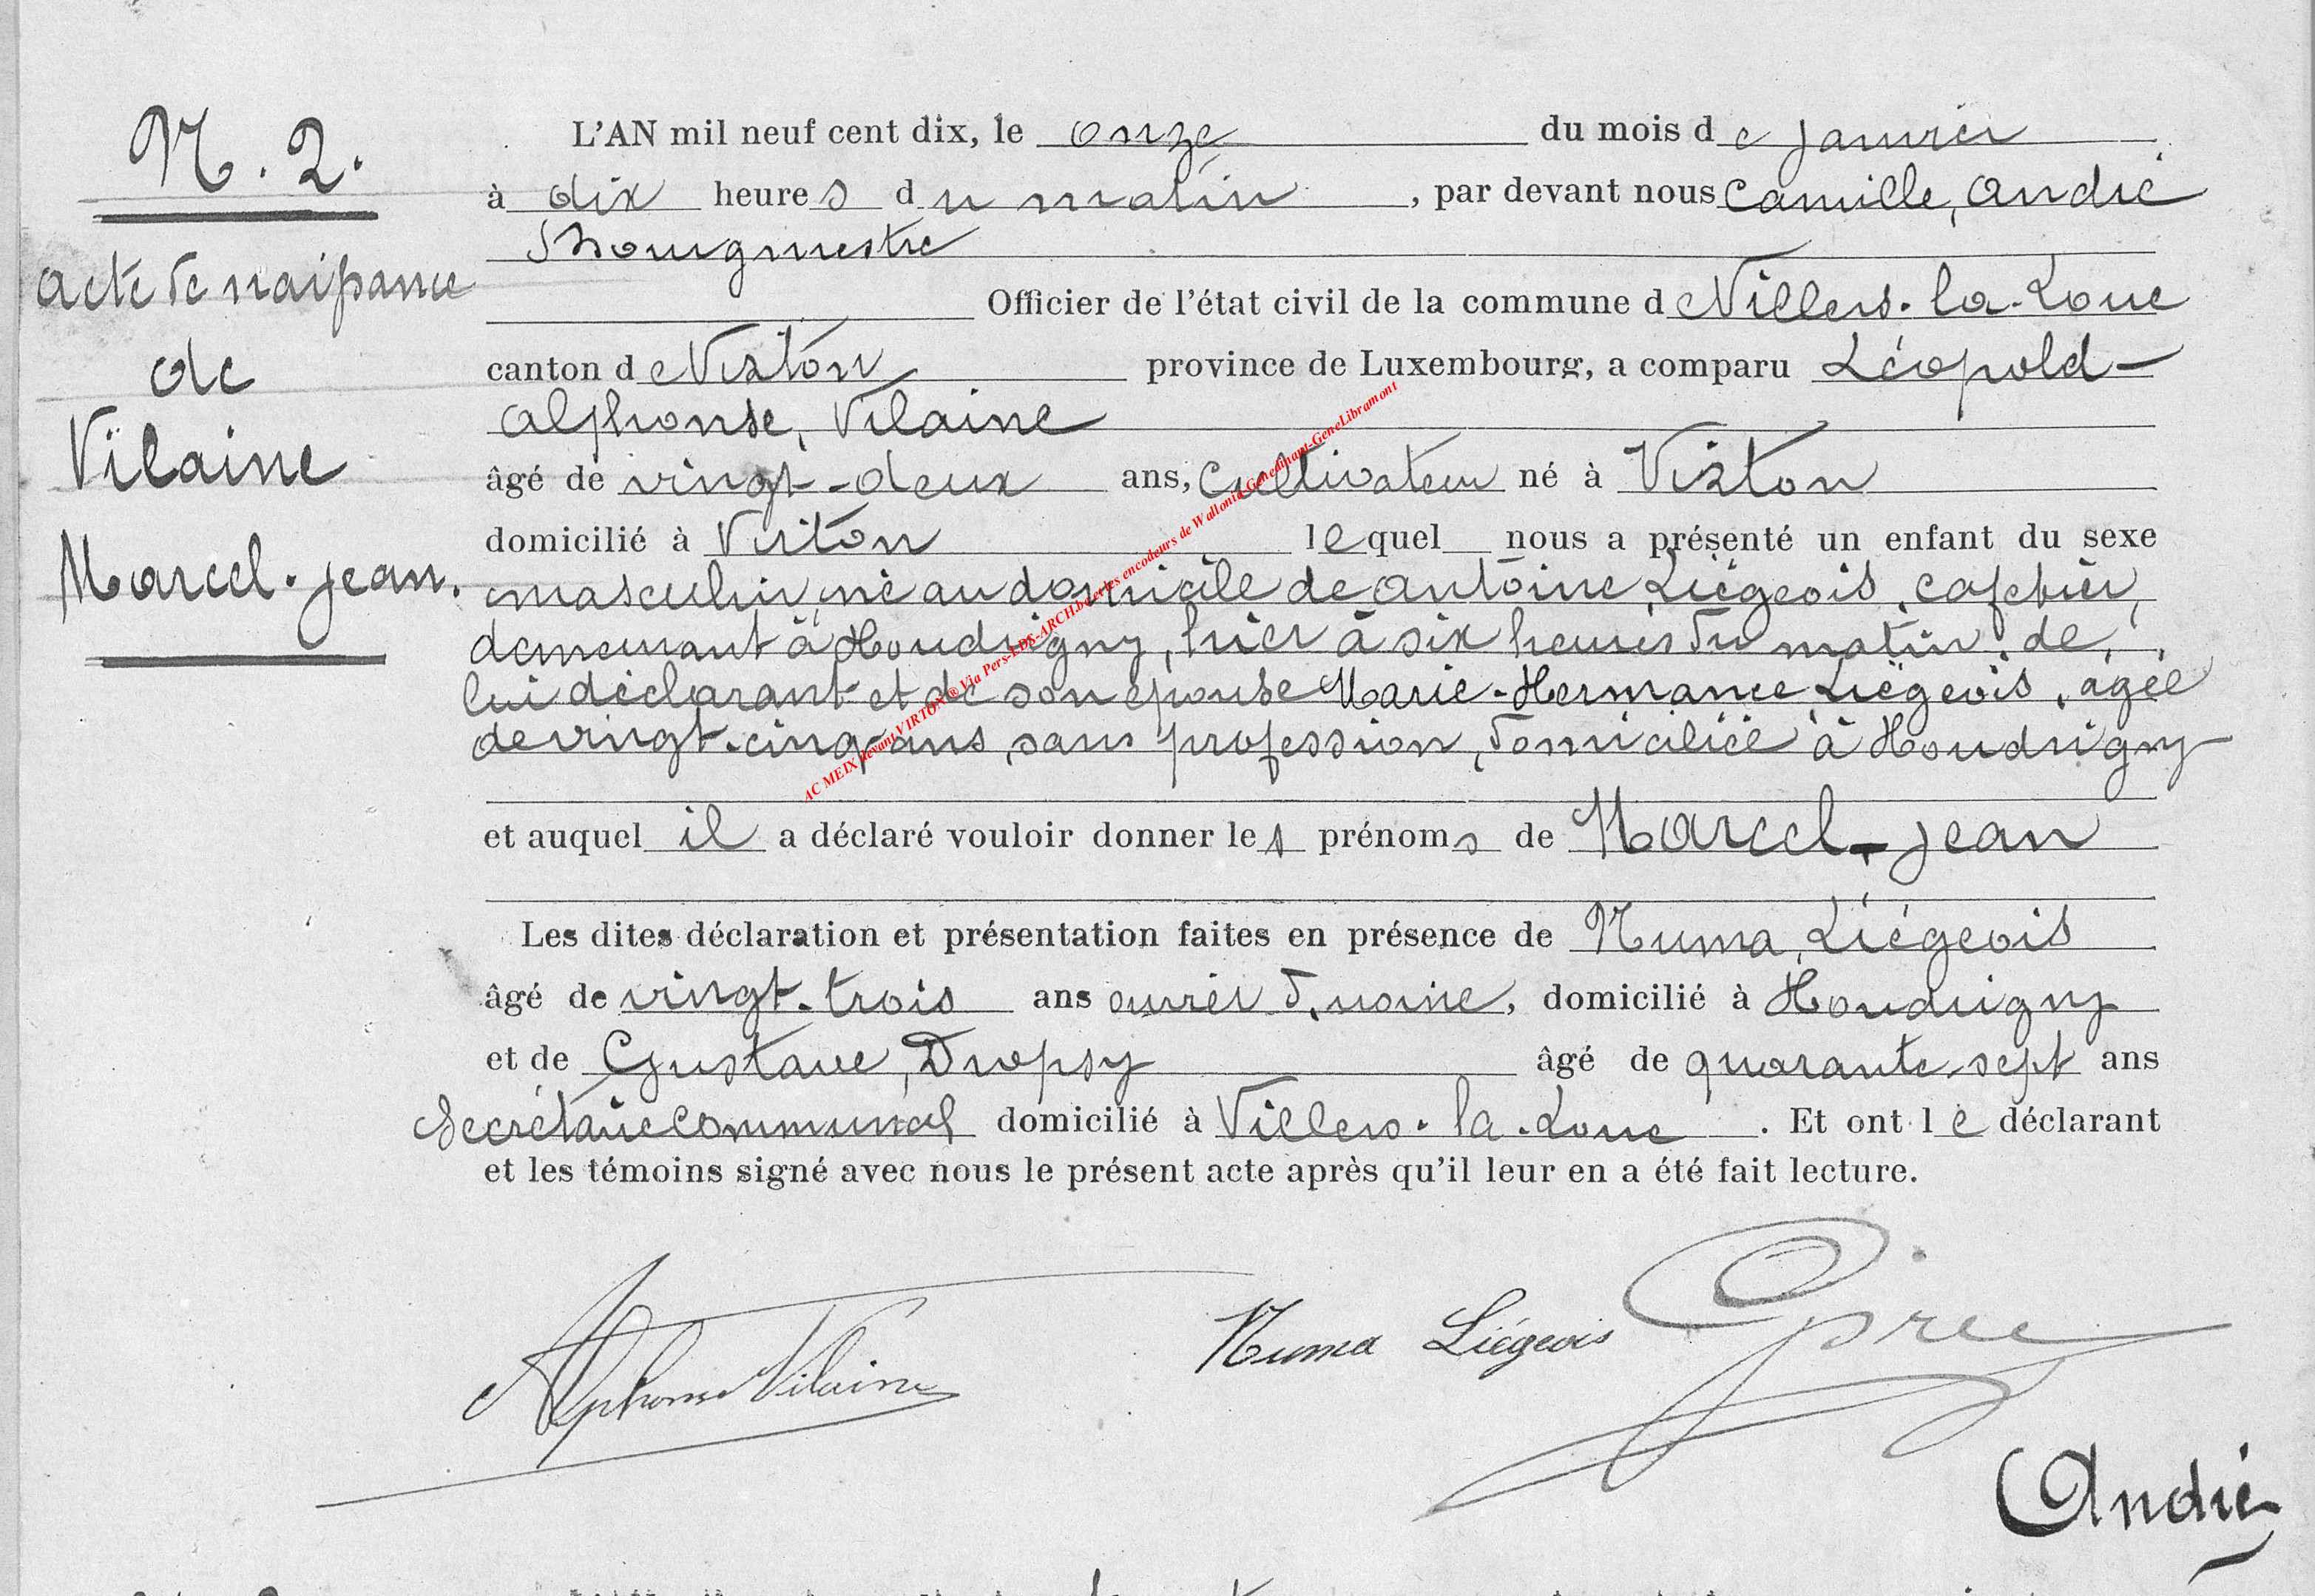 N. 2.
Acte de naissance
de
Vilaine
Marcel-Jean.
L'AN mil neuf cent dix, le onze du mois de Janvier
à dix heures du matin, par devant nous Camille, André
Bourgmestre
Officier de l'état civil de la commune de Villers-la-Loue
canton de Virton province de Luxembourg, a comparu Léopold-
Alphonse, Vilaine
âgé de vingt-deux ans, cultivateur né à Virton
domicilié à Virton lequel nous a présenté un enfant du sexe
masculin, né au domicile de Antoine Liégeois, cafetier,
demeurant à Houdrigny, hier à six heures du matin, de
lui déclarant et de son épouse Marie-Hermance Liégeois, âgée
de vingt-cinq ans, sans profession, domiciliée à Houdrigny
et auquel il a déclaré vouloir donner les prénoms de Marcel-Jean
Les dites déclaration et présentation faites en présence de Numa, Liégeois
âgé de vingt-trois ans ouvrier d'usine, domicilié à Houdrigny
et de Gustave, Dropsy âgé de quarante-sept ans
Secrétaire communal domicilié à Villers-la-Loue. Et ont le déclarant
et les témoins signé avec nous le présent acte après qu'il leur en a été fait lecture.
Alphonse Vilaine
Numa Liégeois
André
AC MEIX devant VIRTON ® Via Pers-EDS-ARCH.be et les encodeurs de Wallonia-Genedinant-GeneLibramont